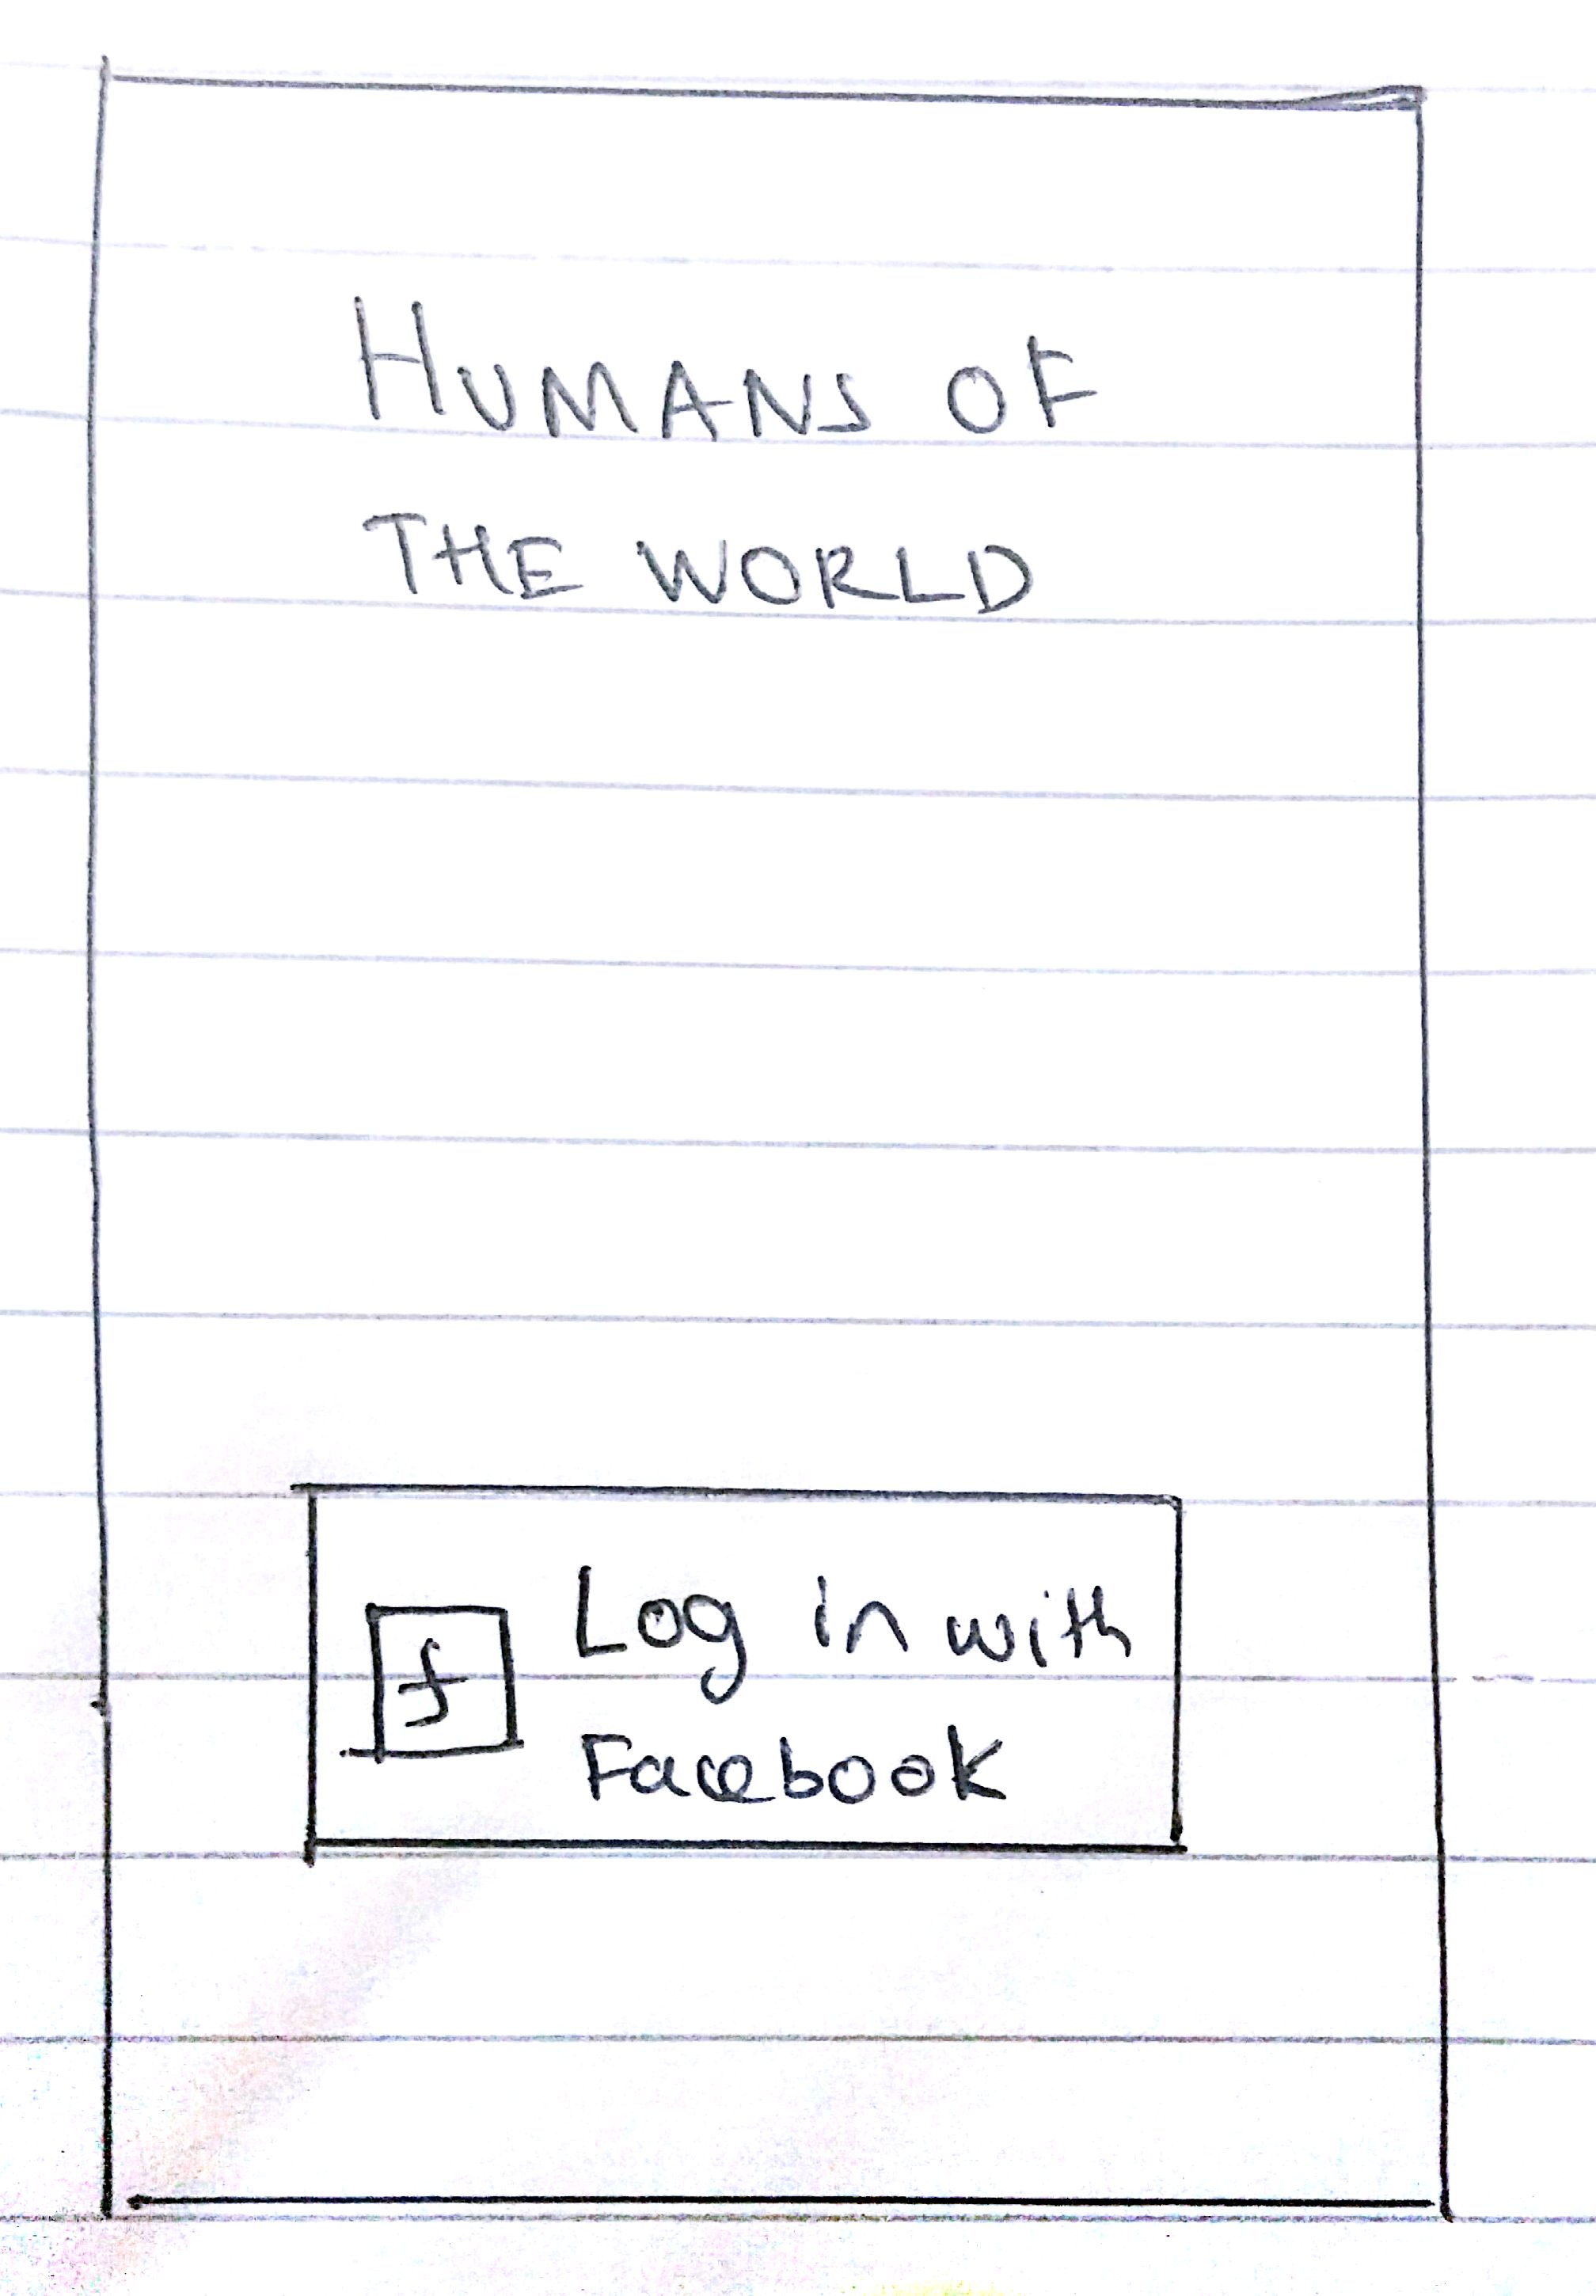 HUMANS OF
THE WORLD
f
Log in with
Facebook